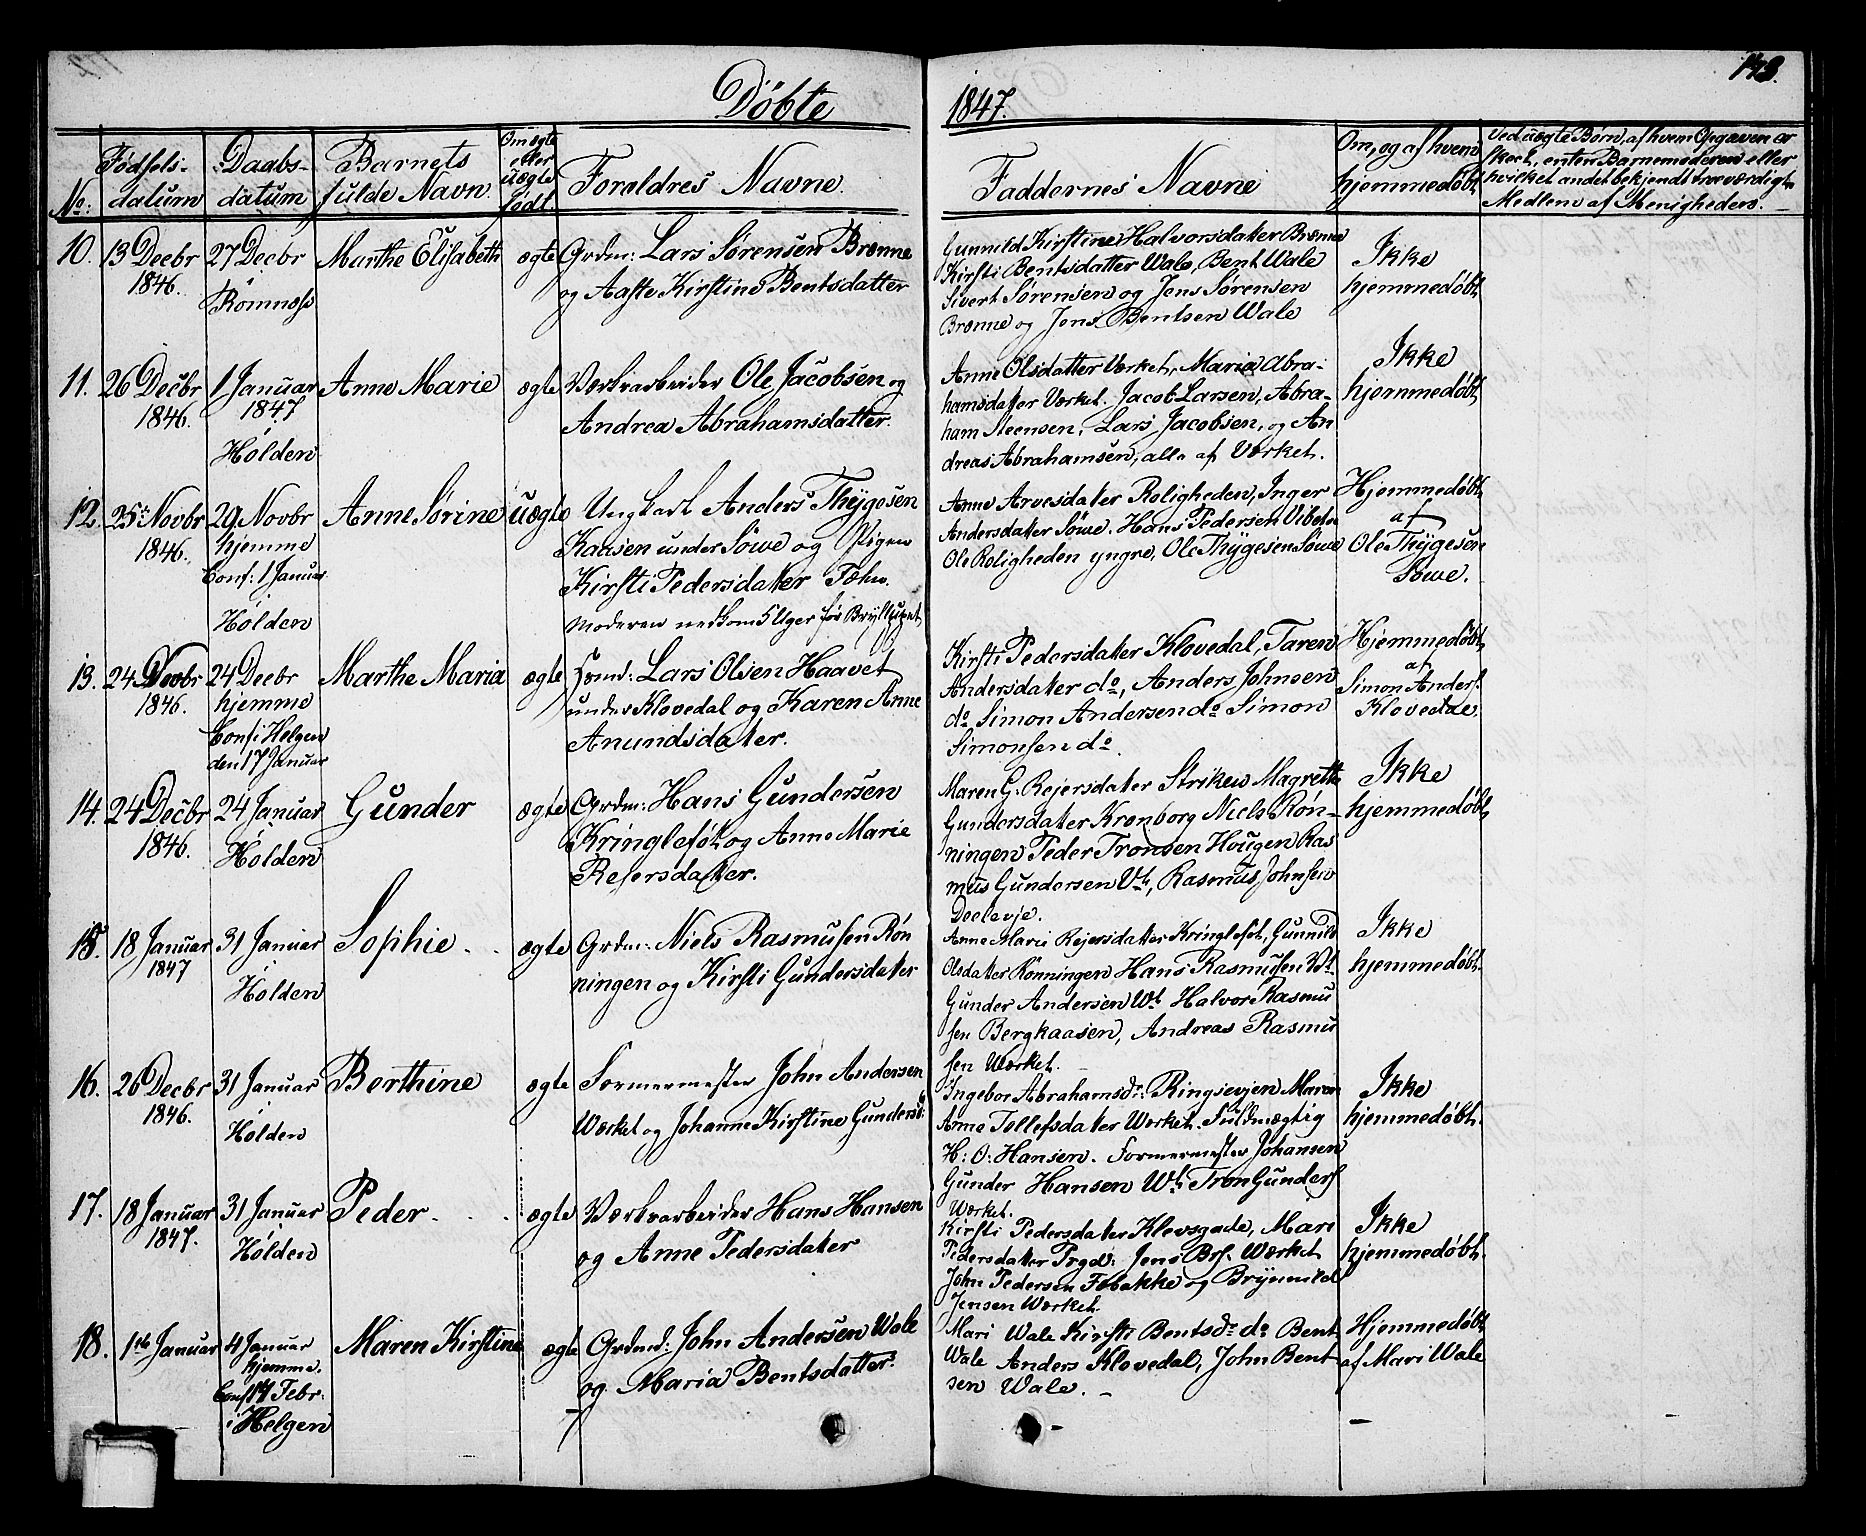 Døbte
1847.
143.
No:
Fødsels-
datum
Daabs-
datum
Barnets
fulde Navn.
Om ægte
eller
uægte
født.
Forældres Navne.
Faddernes Navne
Om, og af hvem
hjemmedøbt
Ved uægte Børn, af hvem Opgaven er
skeet, enten Barnemoderen eller
hvilket andet bekjendt troeværdigt
Medlem af Menigheden.
10.
13 Decbr
1846.
27 Decbr
Romnæss
Marthe Elisabeth
ægte
Grdm: Lars Sørensen Brenne
og Aaste Kirstine Bentsdatter
Gunnild Kirstine Halvorsdatter Brenne
Kirsti Bentsdatter Wale, Bent Wale
Sivert Sørensen og Jens Sørensen
Brenne og Jens Bentsen Wale
Ikke
hjemmedøbt
11.
26 Decbr
1846.
1 Januar
1847
Holden
Anne Marie
ægte
Værksarbeider Ole Jacobsen og
Andrea Abrahamsdatter.
Anne Olsdatter Værket, Maria Abra-
hamsdatter Værket. Jacob Larsen, Abra-
ham Steensen, Lars Jacobsen, og An
dreas Abrahamsen, alle af Værket.
Ikke
hjemmedøbt
12.
25 Novbr
1846.
29 Novbr
hjemme
Conf: 1 Januar
Holden
Anne Sørine
uægte
Ungkarl Anders Thygesen
Kaasen under Søwe og Pigen
Kirsti Pedersdatter Fæhn.
Moderen nedkom 5 Uger før Bryllupet
Anne Arvesdatter Roligheden, Inger
Andersdatter Søwe. Hans Pedersen Vibeto
Ole Roligheden yngre, Ole Thygesen Søwe
Hjemmedøbt
af
Ole Thygesen
Søwe.
13.
24 Novbr
1846.
24 Decbr
hjemme
Conf i Helgen
den 17 Januar
Marthe Maria
ægte
Hmd: Lars Olsen Haavet
under Klovedal og Karen Anne
Anundsdatter.
Kirsti Pedersdatter Klovedal, Taren
Andersdatter do, Anders Johnsen
do, Simon Andersen do Simon
Simonsen do.
Hjemmedøbt
af
Simon Anders.
Klovedal.
14.
24 Decbr
1846.
24 Januar
Holden
Gunder
ægte
Grdm: Hans Gundersen
Kringleføt og Anne Marie
Rejersdatter.
Maren G. Rejersdatter Striken Magrethe
Gundersdatter Kronborg Niels Røn-
ningen Peder Tronsen Hougen Ras
mus Gundersen Vt, Rasmus Johnsen
Doelevje.
Ikke
hjemmedøbt
15.
18 Januar
1847
31 Januar
Holden
Sophie
ægte
Grdm: Niels Rasmussen Røn
ningen og Kirsti Gundersdatter
Anne Marie Rejersdatter Kringlefot, Gunnild
Olsdatter Rønningen Hans Rasmussen Wt
Gunder Andersen Wt Halvor Rasmu
sen Bergkaasen, Andreas Rasmu
sen Værket.
Ikke
hjemmedøbt
16.
26 Decbr
1846.
31 Januar
Holden
Berthine
ægte
Formermester John Andersen
Værket og Johanne Kirstine Gundersd
Ingebor Abrahamsdr: Ringsevjen Maren
Anne Tellefsdatter Værket. Fuldmægtig
H: O: Hansen. Formermester Johansen
Gunder Hansen Wt Tron Gunders
Værket.
Ikke
hjemmedøbt.
17.
18 Januar
1847.
31 Januar
Holden
Peder
ægte
Værksarbeider Hans Hansen
og Anne Pedersdatter
Kirsti Pedersdatter Klevsgade, Mari
Pedersdatter Prgd: Jens Brf. Værket
John Pedersen Febakke og Brynnild
Jensen Værket.
Ikke
hjemmedøbt.
18.
1ste Januar
4 Januar
hjemme.
Conf 14 Febr.
i Helgen
Maren Kirstine
ægte
Grdmd: John Andersen Wale
og Maria Bentsdatter.
Mari Wale Kirsti Bentsdr do Bent
Wale Anders Klovedal, John Bent
sen Wale.
Hjemmedøbt
af Mari Wale